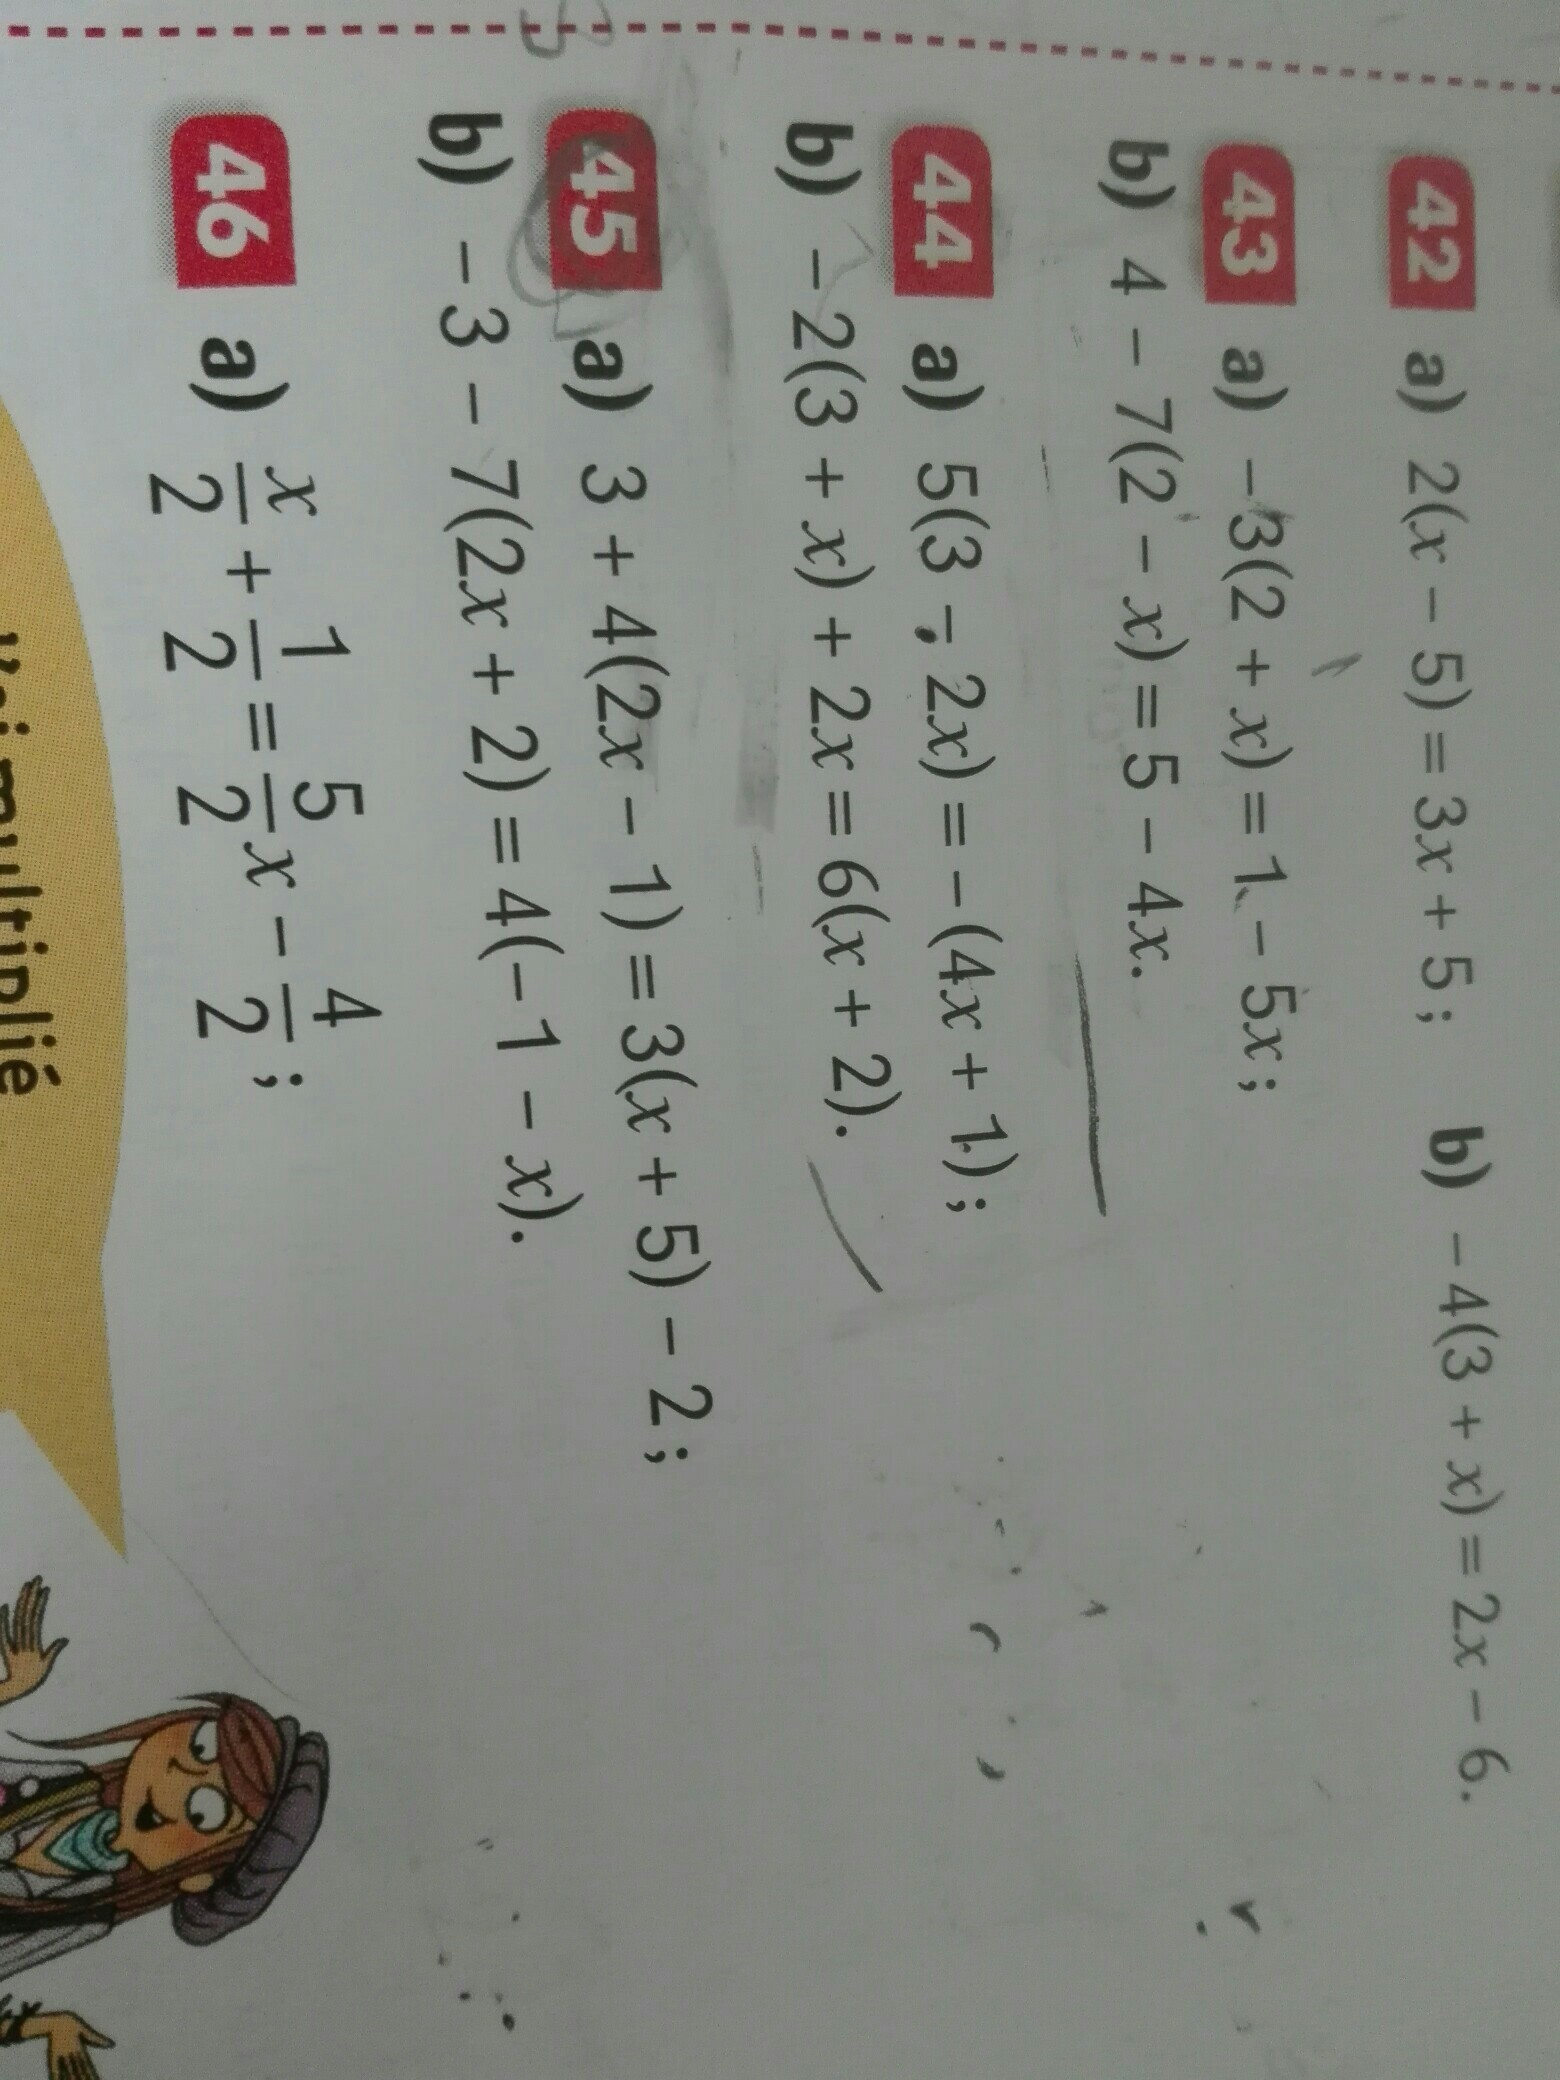 42 a) 2(x – 5) = 3x + 5 ; b) – 4(3 + x) = 2x – 6.
43 a) –3(2 + x) = 1 – 5x ;
b) 4 – 7(2 – x) = 5 – 4x.
44 a) 5(3 – 2x) = – (4x + 1) ;
b) – 2(3 + x) + 2x = 6(x + 2).
45 a) 3 + 4(2x – 1) = 3(x + 5) – 2 ;
b) – 3 – 7(2x + 2) = 4(– 1 – x).
46 a) x/2 + 1/2 = 5/2 x – 4/2 ;
multiplié